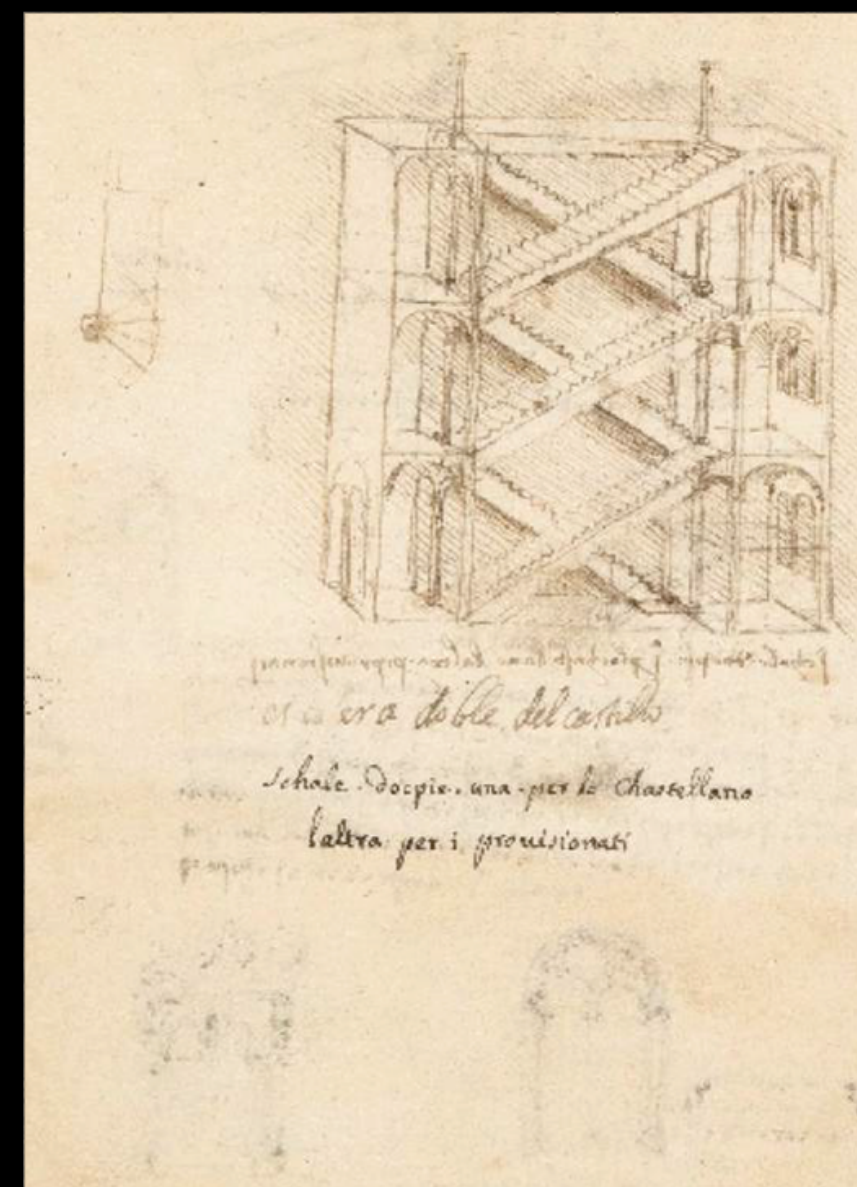 escalera doble. del castillo
schale. docpie. una. per lo chastellano
laltra per. i. prouisionati